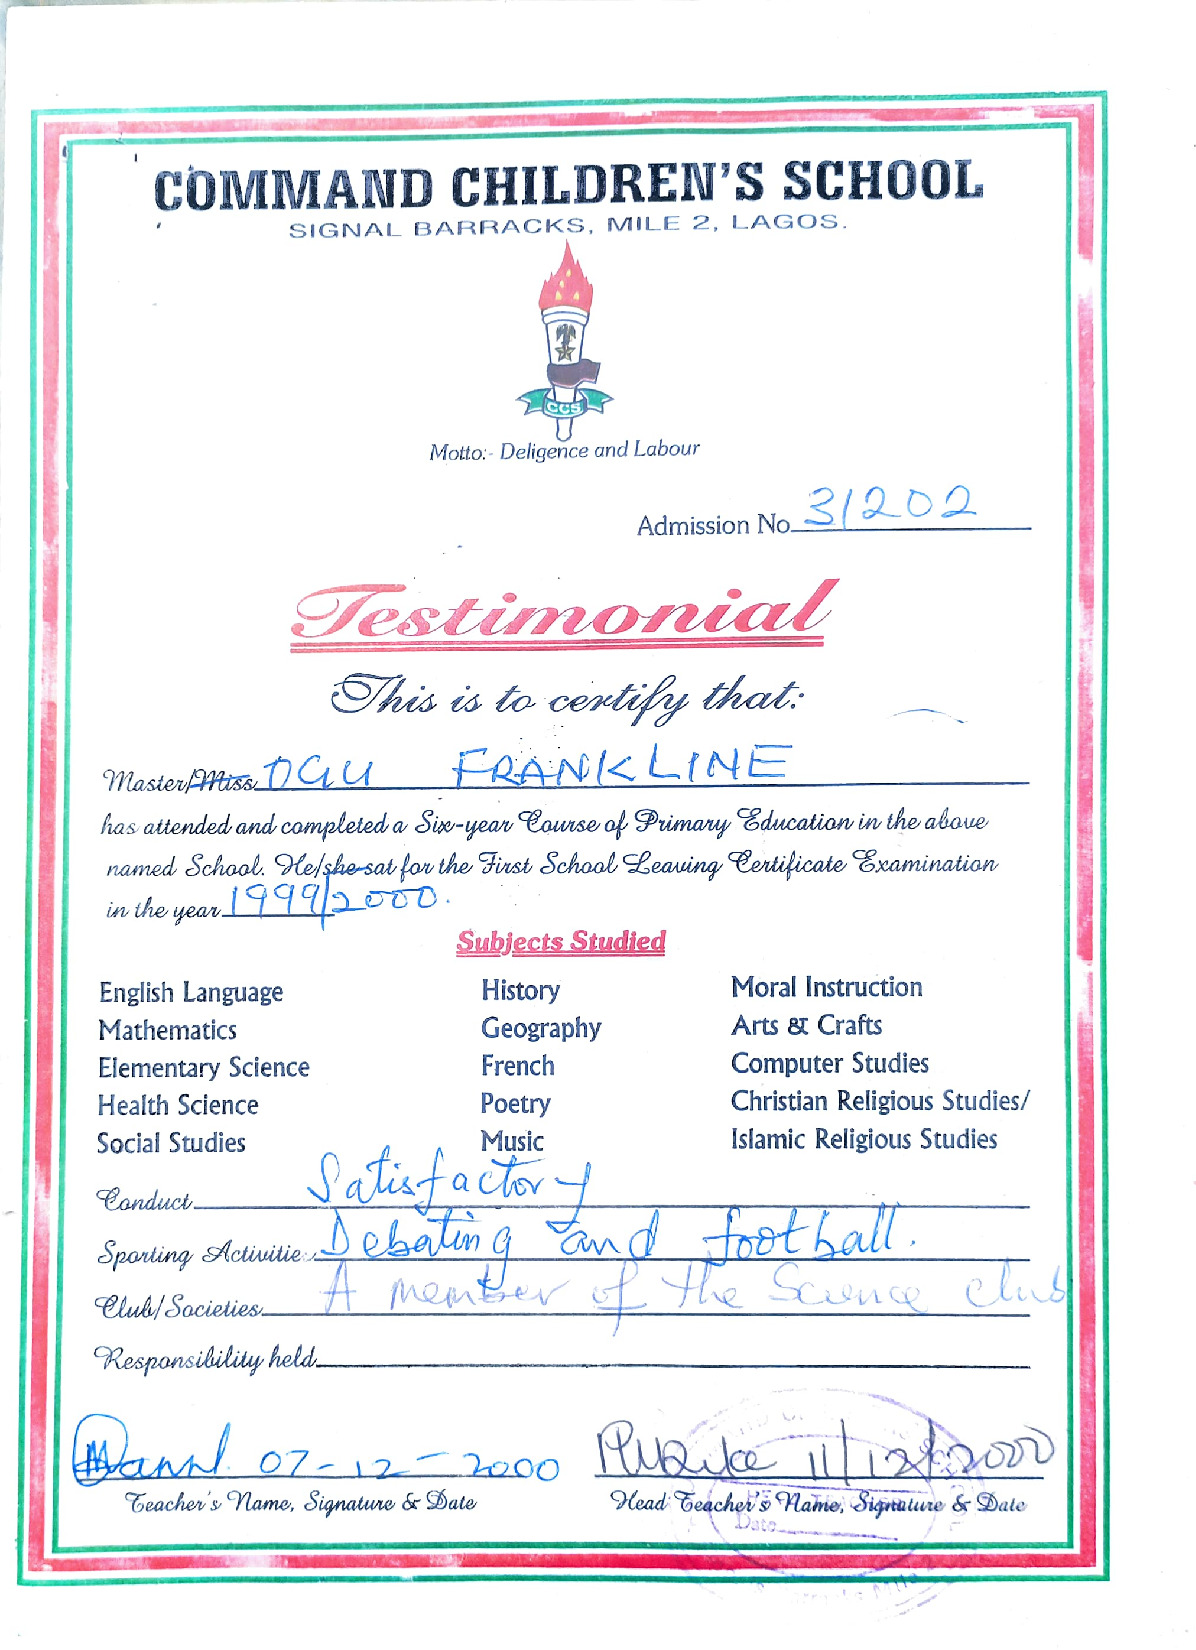 COMMAND CHILDREN'S SCHOOL
SIGNAL BARRACKS, MILE 2, LAGOS.
CCS
Motto:- Deligence and Labour
Admission No 31202
Testimonial
This is to certify that:
Master/Miss OGU FRANKLINE
has attended and completed a Six-year Course of Primary Education in the above
named School. He/she sat for the First School Leaving Certificate Examination
in the year 1999/2000.
Subjects Studied
English Language History Moral Instruction
Mathematics Geography Arts & Crafts
Elementary Science French Computer Studies
Health Science Poetry Christian Religious Studies/
Social Studies Music Islamic Religious Studies
Conduct Satisfactory
Sporting Activitie Debating and football.
Club/Societies A member of the Science club
Responsibility held
07-12-2000 11/12/2000
Teacher's Name, Signature & Date Head Teacher's Name, Signature & Date
Date